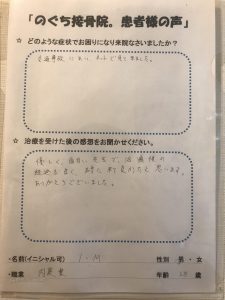 「のぐち接骨院。患者様の声」
☆ どのような症状でお困りになり来院なさいましたか？
交通事故にあい、ネットで見て来ました。
☆ 治療を受けた後の感想をお聞かせください。
優しく、面白い先生で、治療後の
経過も良く、
ありがとうございました。
・名前(イニシャル可) I・M 性別 男・女
・職業 年齢 歳